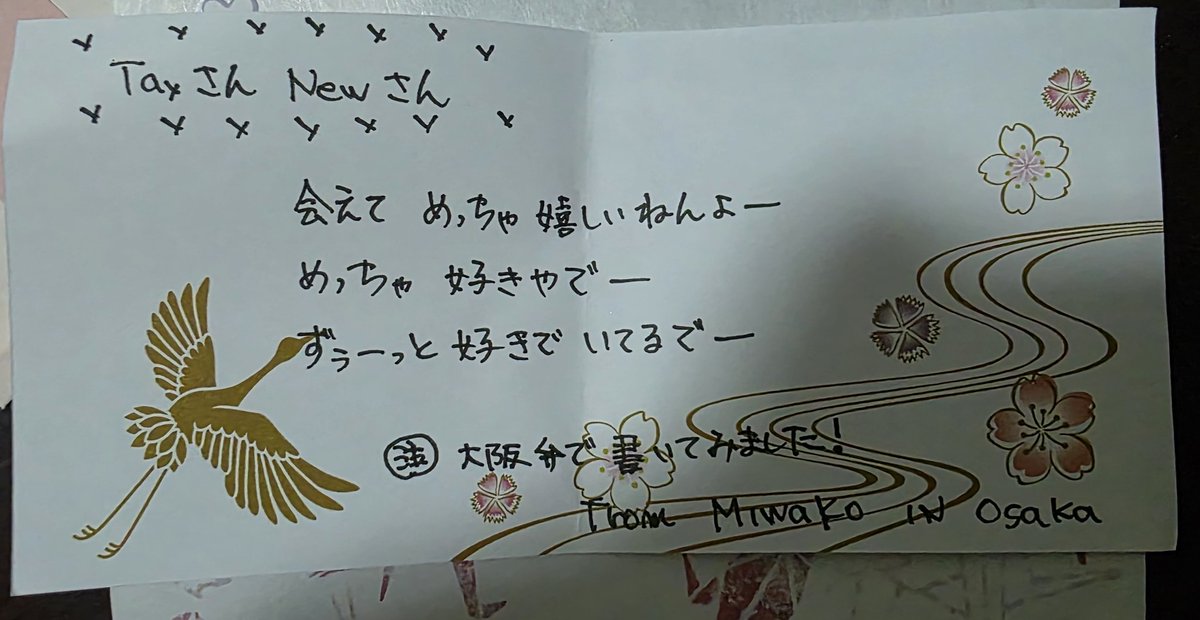 Tayさん Newさん
会えて めっちゃ嬉しいねんよー
めっちゃ 好きやでー
ずぅーっと 好きで いてるでー
注 大阪弁で書いてみました!
From Miwako in Osaka